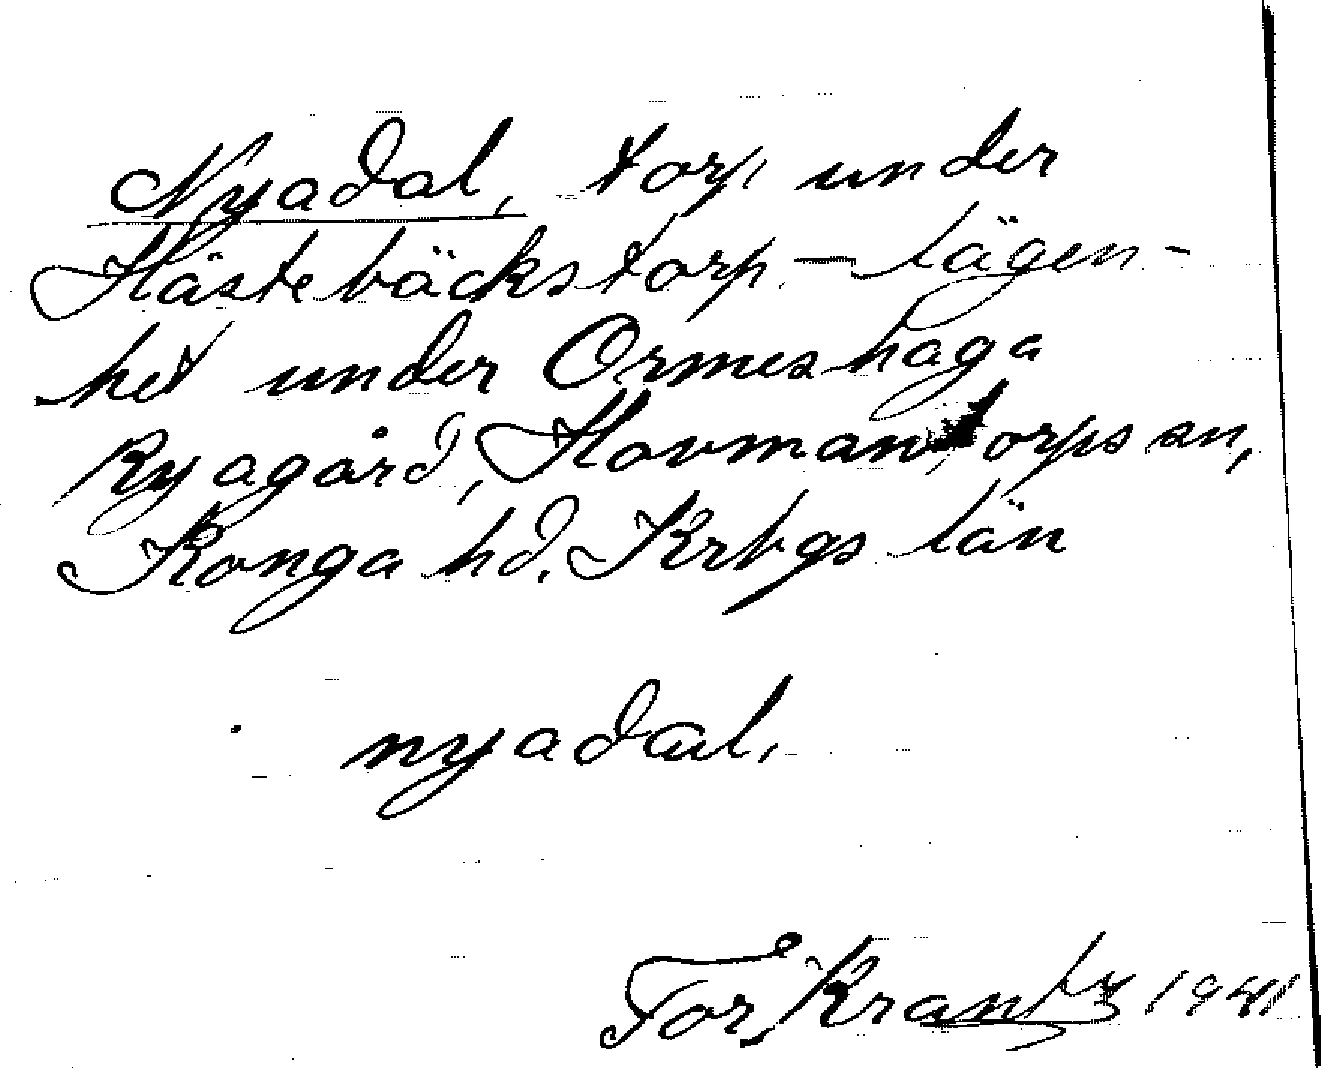 Nyadal, torp under
Hästebäckstorp - lägen-
het under Ormeshaga
Ryagård, Hovmantorps sn,
Konga hd. Krbgs län
nyadal.
Tor Krantz 1941